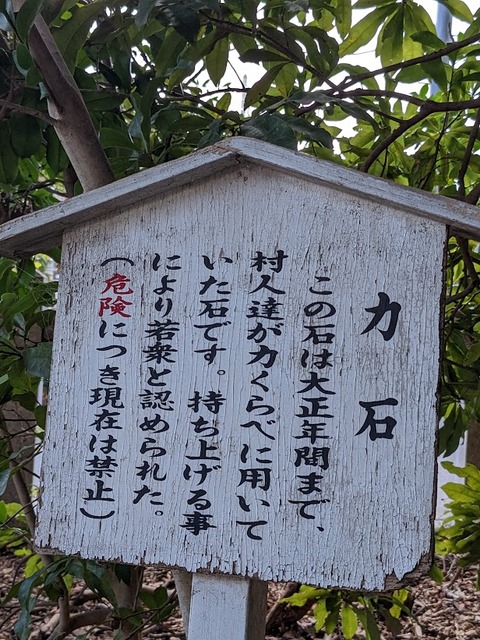 力石
この石は大正年間まで、
村人達が力くらべに用いて
いた石です。持ち上げる事
により若衆と認められた。
（危険につき現在は禁止）